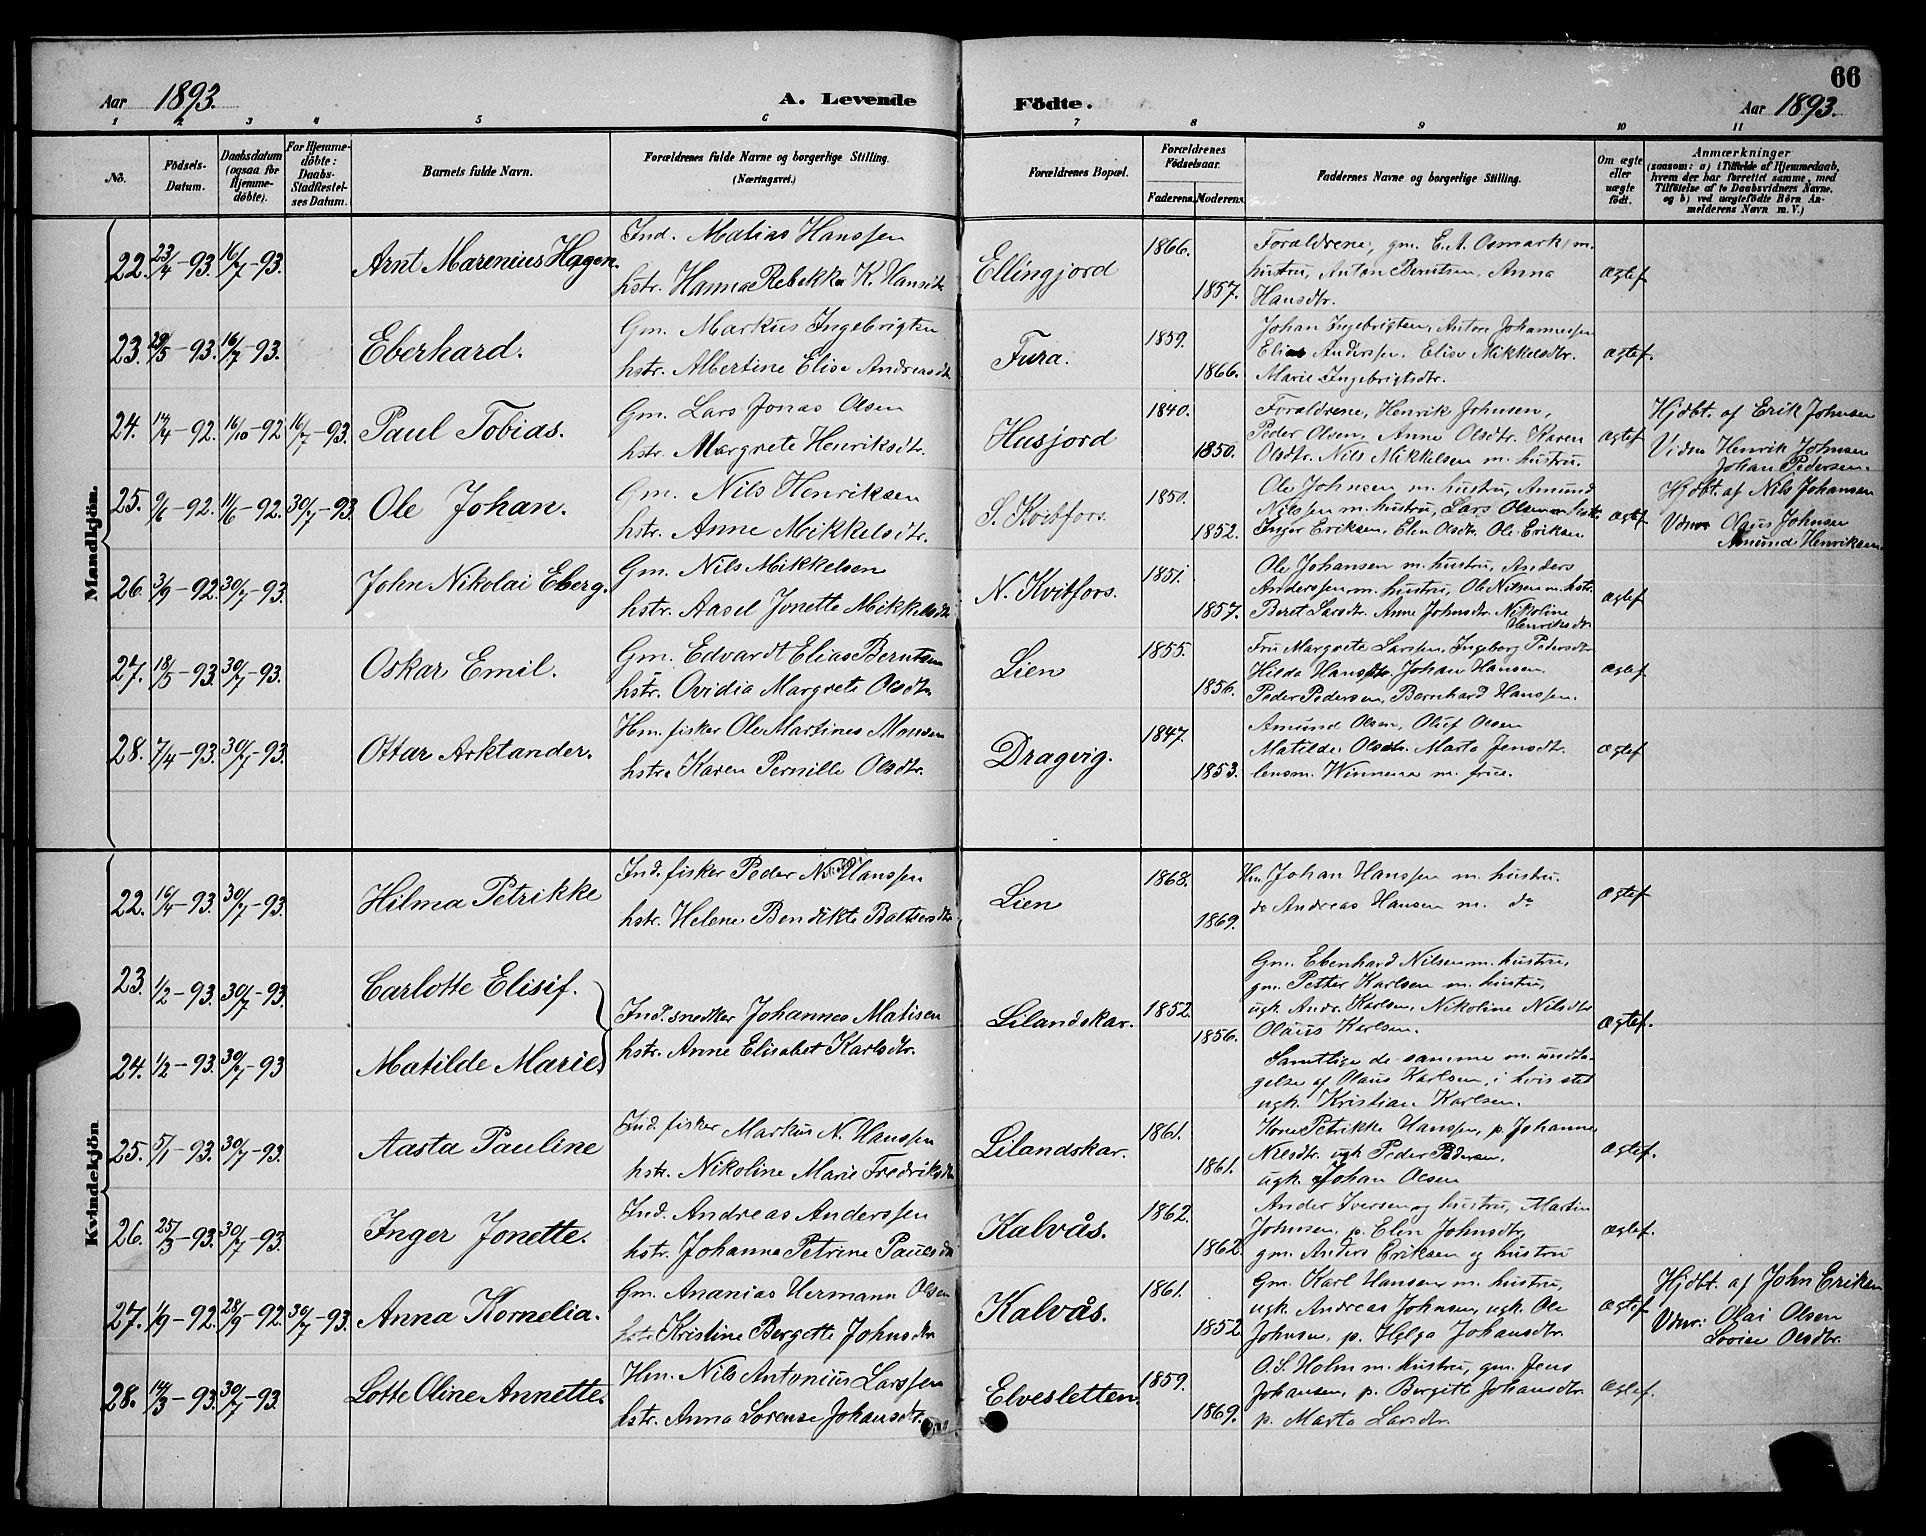 66
Aar 1893.
A. Levende Födte.
Aar 1893.
1 2 3 4 5 6 7 8 9 10 11
No.
Födsels-Datum.
Daabsdatum (ogsaa for Hjemme-döbte).
For Hjemme-döbte: Daabs-Stadfæstel-ses Datum.
Barnets fulde Navn.
Forældrenes fulde Navne og borgerlige Stilling. (Næringsvei.)
Forældrenes Bopæl.
Forældrenes Födselsaar.
Faderens. Moderens.
Faddernes Navne og borgerlige Stilling.
Om ægte eller uægte födt.
Anmærkninger
(saasom: a) i Tilfælde af Hjemmedaab, hvem der har forrettet samme, med Tilföielse af to Daabsvidners Navne. og b) ved uægtefödte Börn An-melderens Navn m. V.)
Mandkjön.
22. 23/4-93. 16/7-93. Arnt Marenius Hagen.
Ind. Matias Hanssen
hstr. Hanna Rebekka K. Hansdtr
Ellingjord 1866. 1857.
Forældrene, gm. E. A. Osmark m.
hustru, Anton Berntsen, Anna
Hansdtr.
ægtef
23. 29/5-93. 16/7-93. Eberhard.
Gm. Markus Ingebrigtsen
hstr. Albertine Elise Andreasdtr
Fura. 1859. 1866.
Johan Ingebrigtsen, Antone Johannessen
Elias Anderssen. Elise Mikkelsdtr.
Marie Ingebrigtsdtr.
ægtef.
24. 14/4-92. 16/10-92 16/7-93. Paul Tobias.
Gm. Lars Jonas Olsen
hstr. Margrete Henriksdtr.
Husjord 1840. 1850.
Forældrene, Henrik Johnsen,
Peder Olsen, Anne Olsdtr. Karen
Olsdtr. Nils Mikkelsen m. hustru.
ægtef
Hjdbt. af Erik Johnsen
Vidne Henrik Johnsen
Johan Pedersen.
25. 9/6-92. 14/6-92. 30/7-93. Ole Johan.
Gm. Nils Henriksen
hstr. Anne Mikkelsdtr.
S. Kvitfors. 1850. 1852.
Ole Johnsen m. hustru, Amund
Nilssen m. hustru, Lars Olsen
Inger Eriksen, Elen Olsdtr Ole Eriksen
ægtef
Hjdbt. af Nils Johansen
Vdne Klaus Johnsen
Amund Henriksen.
26. 3/9-92. 30/7-93. John Nikolai Eberg.
Gm. Nils Mikkelsen
hstr. Aasel Jonette Mikkelsdtr
N. Kvitfors. 1851. 1857.
Ole Johansen m. hustru, Anders
Anderssen m. hustru, Ole Nilsen m. hstr.
Beret Larsdtr. Anne Johnsdtr. Nikoline
Henriksdtr.
ægtef
27. 18/5-93. 30/7-93. Oskar Emil.
Gm. Edvardt Elias Berntsen
hstr. Ovidia Margrete Olsdtr.
Lien 1855. 1856.
Fru Margrete Larssen, Ingeborg Pedersdtr
Hilda Hansdtr. Johan Hansen
Peder Pedersen, Bernhard Hanssen.
ægtef
28. 7/4-93. 30/7-93. Ottar Arktander.
Hm. fisker Ole Martines Monsen
hstr. Karen Pernille Olsdtr.
Dragvig. 1847. 1853.
Amund Olsen, Oluf Olsen
Matilde Olsdtr. Marta Jensdtr.
lensm. Winnem m. frue.
ægtef
Kvindekjön.
22. 16/4-93. 30/7-93. Hilma Petrikke
Ind. fisker Peder N. Hanssen
hstr. Helene Bendikte Baltsersdtr
Lien 1868. 1869.
Hm. Johan Hanssen m. hustru.
do Andreas Hansen m. do
ægtef
23. 1/2-93. 30/7-93. Carlotte Elisif.
24. 1/2-93. 30/7-93 Matilde Marie
Ind. snedker Johannes Matisen
hstr. Anne Elisabet Karlsdtr.
Lilandskar. 1852. 1856.
Gm. Ebenhard Nilsen m. hustru,
gm. Petter Karlsen m. hustru,
ugk. Andr. Karlsen, Nikoline Nilsdtr
Olaus Karlsen.
Samtlige de samme m. undta-
gelse af Olaus Karlsen, i hvis sted
ugk. Kristian Karlsen.
ægtef.
25. 5/1-93. 30/7-93. Aasta Pauline
Ind. fisker Markus N. Hanssen
hstr. Nikoline Marie Fredriksdtr
Lilandskar. 1861. 1861.
Kone Petrikke Hanssen, p. Johanne
Nilsdtr. ugk Peder Pedersen,
ugk. Johan Olsen
ægtef.
26. 25/3-93. 30/7-93. Inger Jonette.
Ind. Andreas Anderssen
hstr. Johanna Petrine Paulsdtr
Kalvås. 1862. 1862.
Ander Iversen og hustru, Martin
Johnsen, p. Elen Johnsdtr,
gm. Anders Eriksen og hustru
ægtef.
27. 1/9-92. 28/9-92. 30/7-93. Anna Kornelia.
Gm. Ananias Hermann Olsen
hstr. Kristine Bergette Johnsdtr
Kalvås. 1861. 1852
Gm. Karl Hansen m. hustru,
ugk. Andreas Johnsen, ugk. Ole
Johnsen, p. Helga Johansdtr.
ægtef.
Hjdbt. af John Eriksen
Vdner: Olai Olsen
Lovise Olsdtr.
28. 14/3-93. 30/7-93. Lotte Oline Annette.
Hm. Nils Antonius Larssen
hstr. Anna Lorense Johansdtr.
Elvesletten. 1859. 1869.
O. S. Holm m. hustru, gm. Jens
Johansen, p. Bergitte Johansdtr.
p. Marta Larsdtr.
ægtef.